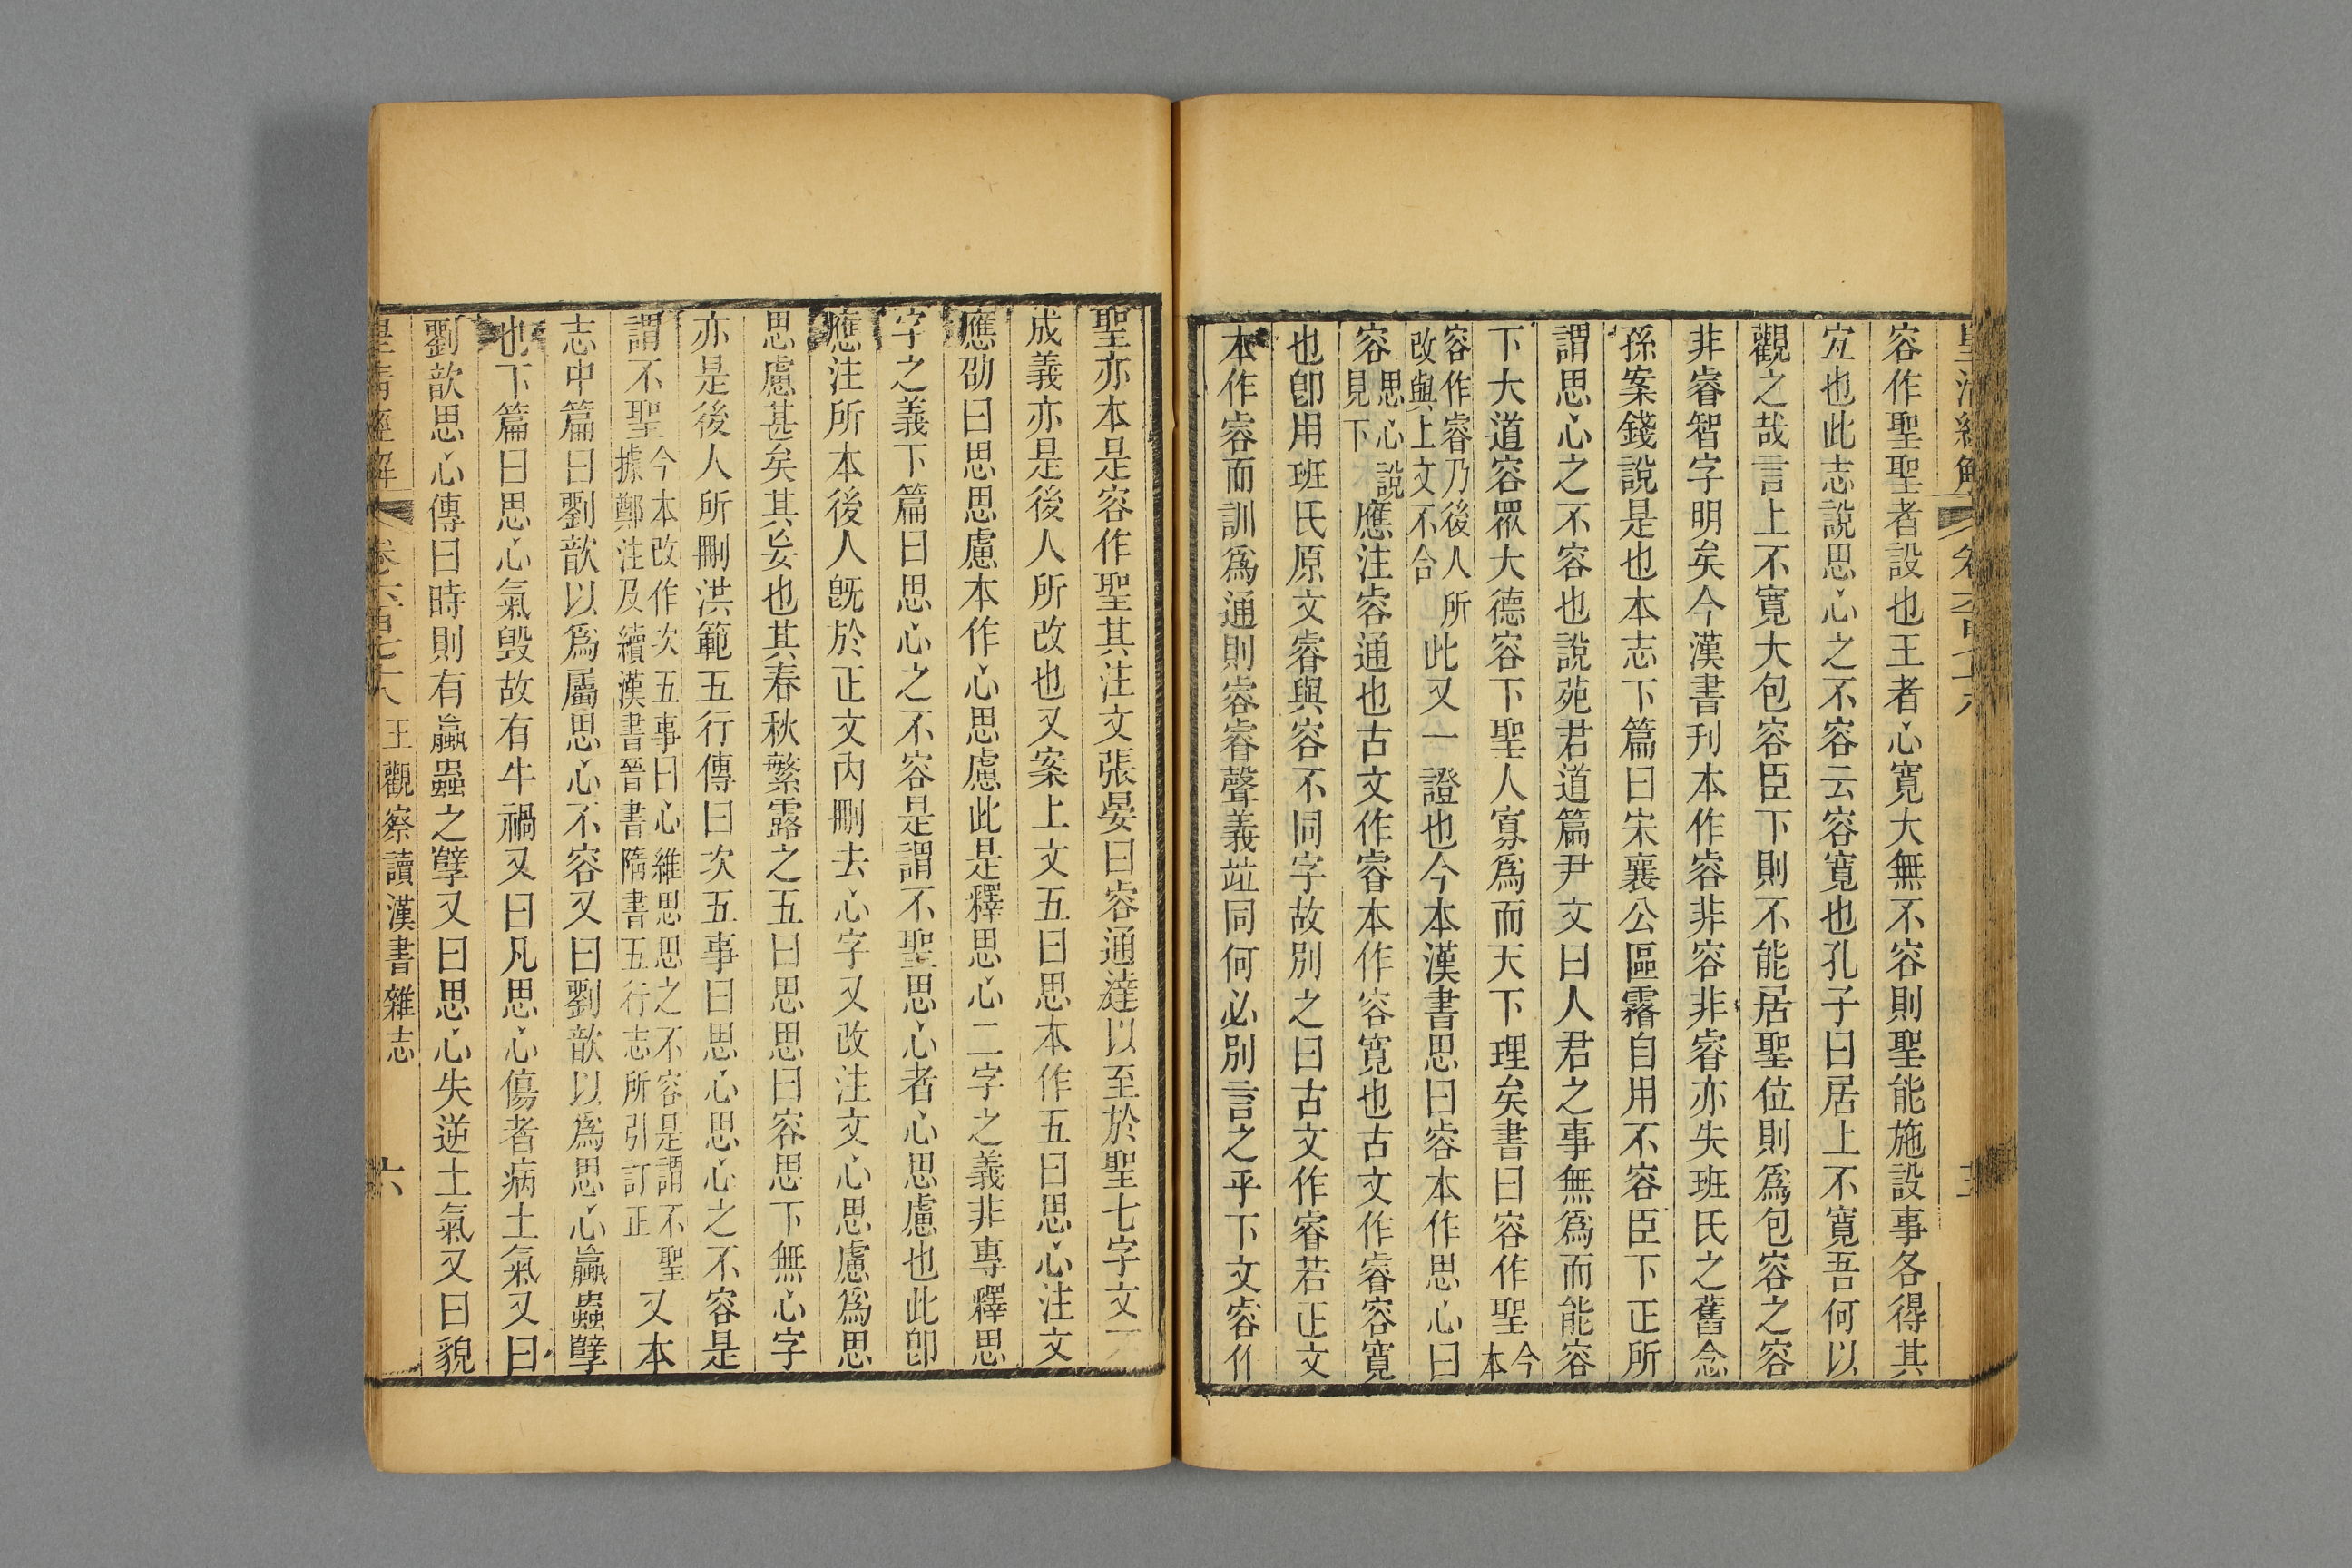 容作聖聖者設也王者心寬大無不容則聖能施設事各得其
宐也此志說思心之不容云容寬也孔子曰居上不寬吾何以
觀之哉言上不寬大包容臣下則不能居聖位則爲包容之容
非睿智字明矣今漢書刊本作㕡非容非睿亦失班氏之舊念
孫案錢說是也本志下篇曰宋襄公區霿自用不容臣下正所
謂思心之不容也說苑君道篇尹文曰人君之事無爲而能容
下大道容眾大德容下聖人寡爲而天下理矣書曰容作聖今本
容作睿乃後人所改與上文不合此又一證也今本漢書思曰㕡本作思心曰
容思心說見下應注㕡通也古文作睿本作容寬也古文作睿容寬
也卽用班氏原文睿與容不同字故別之曰古文作睿若正文
本作㕡而訓爲通則㕡睿聲義竝同何必別言之乎下文㕡作
聖亦本是容作聖其注文張晏曰㕡通達以至於聖七字文不
成義亦是後人所改也又案上文五曰思本作五曰思心注文
應劭曰思思慮本作心思慮此是釋思心二字之義非專釋思
字之義下篇曰思心之不容是謂不聖思心者心思慮也此卽
應注所本後人旣於正文內刪去心字又改注文心思慮爲思
思慮甚矣其妄也其春秋繁露之五曰思思曰容思下無心字
亦是後人所刪洪範五行傳曰次五事曰思心思心之不容是
謂不聖今本改作次五事曰心維思思之不容是謂不聖據鄭注及續漢書晉書隋書五行志所引訂正又本
志中篇曰劉歆以爲屬思心不容又曰劉歆以爲思心蠃蟲孽
也下篇曰思心氣毀故有牛禍又曰凡思心傷者病土氣又曰
劉歆思心傳曰時則有蠃蟲之孽又曰思心失逆土氣又曰貌
皇清經解 卷六百七十八 王觀察讀漢書雜志 六